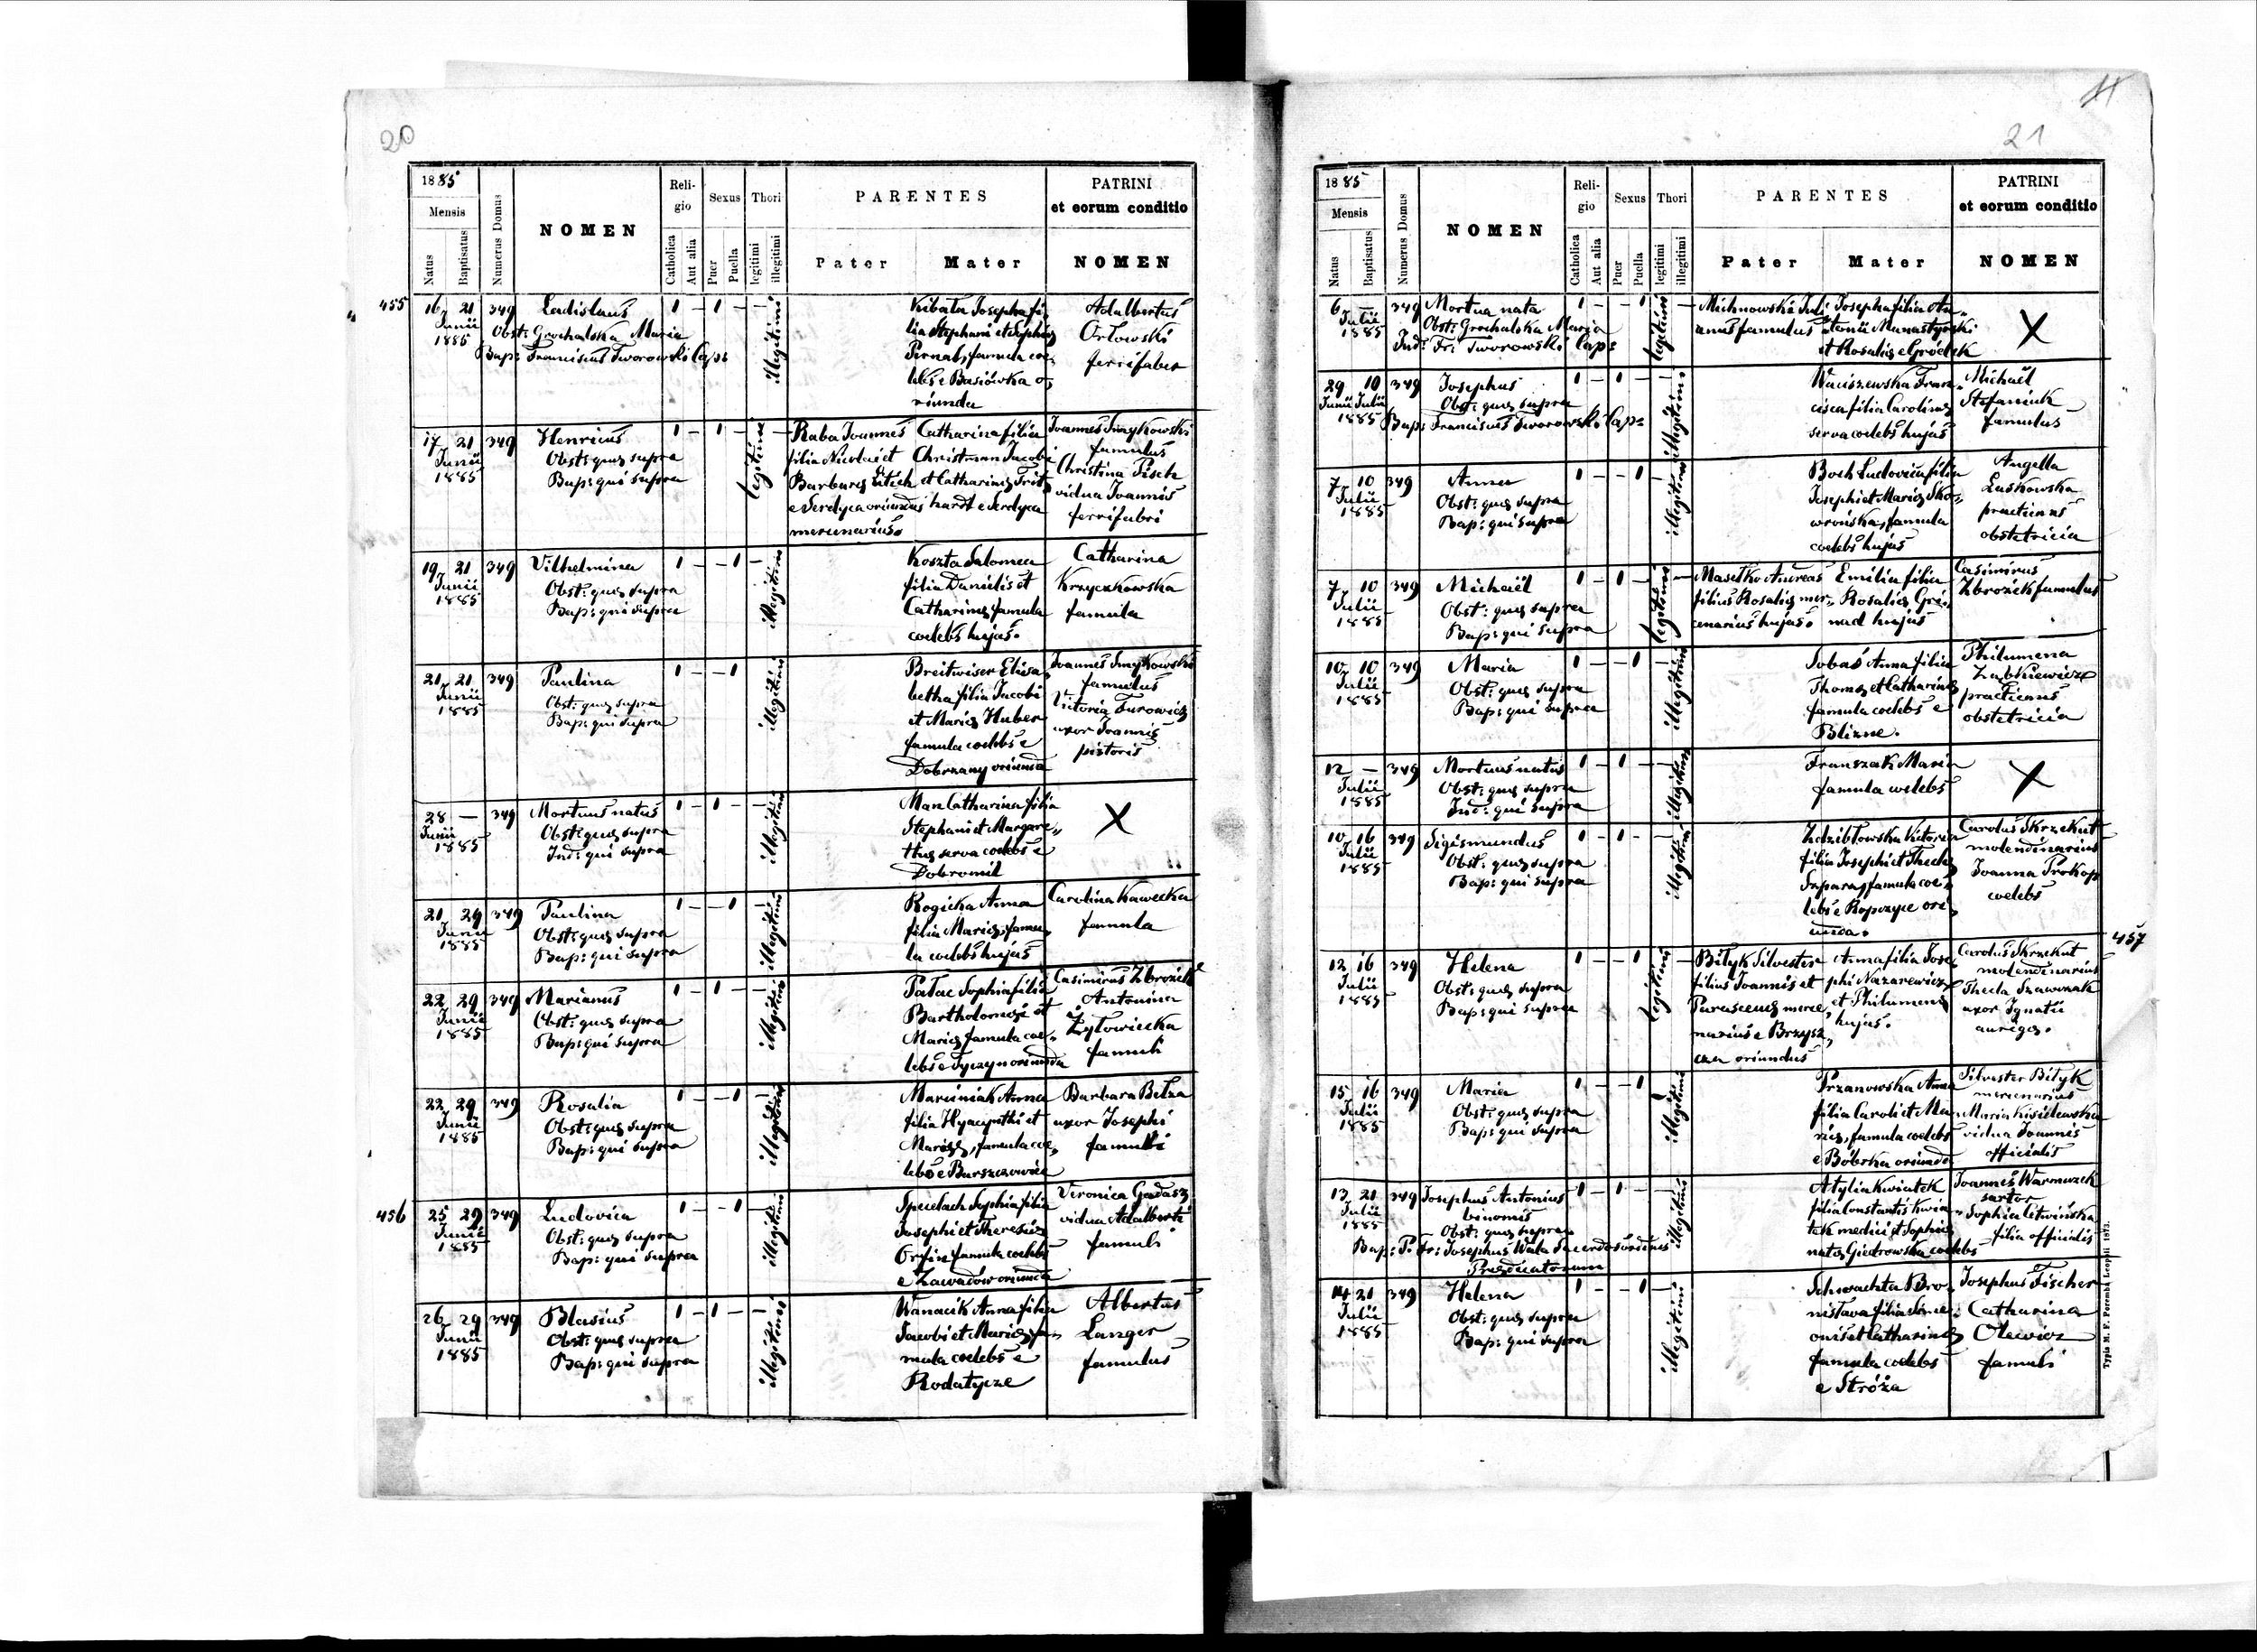 20
1885
Mensis
Natus
Baptisatus
Numerus Domus
NOMEN
Reli-
gio
Catholica
Aut alia
Sexus
Puer
Puella
Thori
legitimi
illegitimi
PARENTES
Pater
Mater
PATRINI
et eorum conditio
NOMEN
455
16 21 349 Ladislaus 1 - 1 - -
Junii
1885
Obst: Grochalska Maria
Bap: Franciscus Tworowski Cap:
illegitimi
Kubata Josepha fi-
lia Stephani et Sophiæ
Pernal, famula coe-
lebs e Basiówka o-
riunda
Adalbertus
Orłowski
ferrifaber
17 21 349 Henricus 1 - 1 - -
Junii
1885
Obst: quæ supra
Bap: qui supra
legitimi
Raba Joannes
filia Nicolai et
Barbaræ Litich
e Serdyca oriundus
mercenarius.
Catharina filia
Christman Jacobi
et Catharinæ Frit-
hardt e Serdyca
Joannes Smykowski
famulus
Christina Pisch
vidua Joannis
ferrifabri
19 21 349 Vilhelmina 1 - - 1 -
Junii
1885
Obst: quæ supra
Bap: qui supra
illegitimi
Koszta Salomea
filia Danielis et
Catharinæ famula
coelebs hujas.
Catharina
Krzyczkowska
famula
21 21 349 Paulina 1 - - 1
Junii
1885
Obst: quæ supra
Bap: qui supra
illegitimi
Breitwiser Elisa-
betha filia Jacobi
et Mariæ Huber
famula coelebs e
Dobrzany oriunda
Joannes Smykowski
famulus
Victoria Turowicz
uxor Joannis
pistoris
28 — 349 Mortuus natus 1 - 1 - -
Junii
1885
Obst: quæ supra
Ind: qui supra
illegitimi
Man Catharina filia
Stephani et Margare-
thæ serva coelebs e
Dobromil
X
21 29 349 Paulina 1 - - 1 -
Junii
1885
Obst: quæ supra
Bap: qui supra
illegitimi
Rogicka Anna
filia Mariæ, famu-
la coelebs hujas
Carolina Kawecka
famula
22 29 349 Marianus 1 - 1 - -
Junii
1885
Obst: quæ supra
Bap: qui supra
illegitimi
Pałac Sophia filia
Bartholomæi et
Mariæ famula coe-
lebs e Tyczyn oriunda
Casimirus Zbrożek
Antonina
Żytowiecka
famuli
22 29 349 Rosalia 1 - - 1 -
Junii
1885
Obst: quæ supra
Bap: qui supra
illegitimi
Marciniak Anna
filia Hyacynthi et
Mariæ, famula coe-
lebs e Burszczowice
Barbara Bełza
uxor Josephi
famuli
456
25 29 349 Ludovica 1 - - 1 -
Junii
1885
Obst: quæ supra
Bap: qui supra
illegitimi
Spuelach Sophia filia
Josephi et Theresiæ
Orfin famula coelebs
e Zawadów oriunda
Veronica Gadasz
vidua Adalberti
famuli
26 29 349 Blasius 1 - 1 - -
Junii
1885
Obst: quæ supra
Bap: qui supra
illegitimi
Wanacik Anna filia
Jacobi et Mariæ, fa-
mula coelebs e
Rodatycze
Albertus
Langer
famulus
21
1885
Mensis
Natus
Baptisatus
Numerus Domus
NOMEN
Reli-
gio
Catholica
Aut alia
Sexus
Puer
Puella
Thori
legitimi
illegitimi
PARENTES
Pater
Mater
PATRINI
et eorum conditio
NOMEN
6 — 349 Mortua nata 1 - - 1 -
Julii
1885
Obst: Grochalska Maria
Ind: Fr: Tworowski Cap:
legitimi
Michnowski Juli-
anus famulus
Josepha filia An-
tonii Manastyrski
et Rosaliæ e Gródek
X
29 10 349 Josephus 1 - 1 - -
Junii Julii
1885
Obst: quæ supra
Bap: Franciscus Tworowski Cap:
illegitimi
Waciszewska Fran-
cisca filia Carolinæ
serva coelebs hujas
Michaël
Stefaniuk
famulus
7 10 349 Anna 1 - - 1 -
Julii
1885
Obst: quæ supra
Bap: qui supra
illegitimi
Boch Ludovica filia
Josephi et Mariæ Sko-
wrońska, famula
coelebs hujas
Angella
Laskowska
practicans
obstetricia
7 10 349 Michaël 1 - 1 - -
Julii
1885
Obst: quæ supra
Bap: qui supra
legitimi
Masełko Andreas
filius Rosaliæ mer-
cenarius hujas.
Emilia filia
Rosaliæ Gri-
nad hujas
Casimirus
Zbrożek famulus
10 10 349 Maria 1 - - 1 -
Julii
1885
Obst: quæ supra
Bap: qui supra
illegitimi
Sobaś Anna filia
Thomæ et Catharinæ
famula coelebs e
Blizne.
Philumena
Ząbkiewicz
practicans
obstetricia
12 — 349 Mortuus natus 1 - 1 - -
Julii
1885
Obst: quæ supra
Ind: qui supra
illegitimi
Franszak Maria
famula coelebs
X
10 16 349 Sigismundus 1 - 1 - -
Julii
1885
Obst: quæ supra
Bap: qui supra
illegitimi
Zdzibłowska Victoria
filia Josephi et Theclæ
Szpara, famula coe-
lebs e Ropczyce ori-
unda.
Carolus Skrzekut
molendinarius
Joanna Prokop
coelebs
457
12 16 349 Helena 1 - - 1 -
Julii
1885
Obst: quæ supra
Bap: qui supra
legitimi
Bityk Silvester
filius Joannis et
Parascevæ merce-
narius e Brzysz-
cza oriundus
Anna filia Jose-
phi Nazarewicz
et Philumenæ
hujas.
Carolus Skrzekut
molendinarius
Thecla Szawczak
uxor Ignatii
aurigæ.
15 16 349 Maria 1 - - 1 -
Julii
1885
Obst: quæ supra
Bap: qui supra
illegitimi
Przanowska Anna
filia Caroli et Ma-
riæ, famula coelebs
e Bóbrka oriunda
Silvester Bityk
mercenarius
Maria Kisielewska
vidua Joannis
officialis
13 21 349 Josephus Antonius 1 - 1 - -
Julii
1885
binomis
Obst: quæ supra
Bap: P. Fr: Josephus Wala Sacerdos ordinis
Prædicatorum
illegitimi
Atylia Kwiatek
filia Constantis Kwia-
tek medici et Sophiæ
natæ Giedrowska coelebs
Joannes Warmuzek
sartor
Sophia Litwińska
filia officialis
14 21 349 Helena 1 - - 1 -
Julii
1885
Obst: quæ supra
Bap: qui supra
illegitimi
Schwachta Bro-
nisłava filia Sime-
onis et Catharinæ
famula coelebs
e Stróża
Josephus Fischer
Catharina
Olewicz
famuli
Typis M. F. Poremba Leopoli 1873.